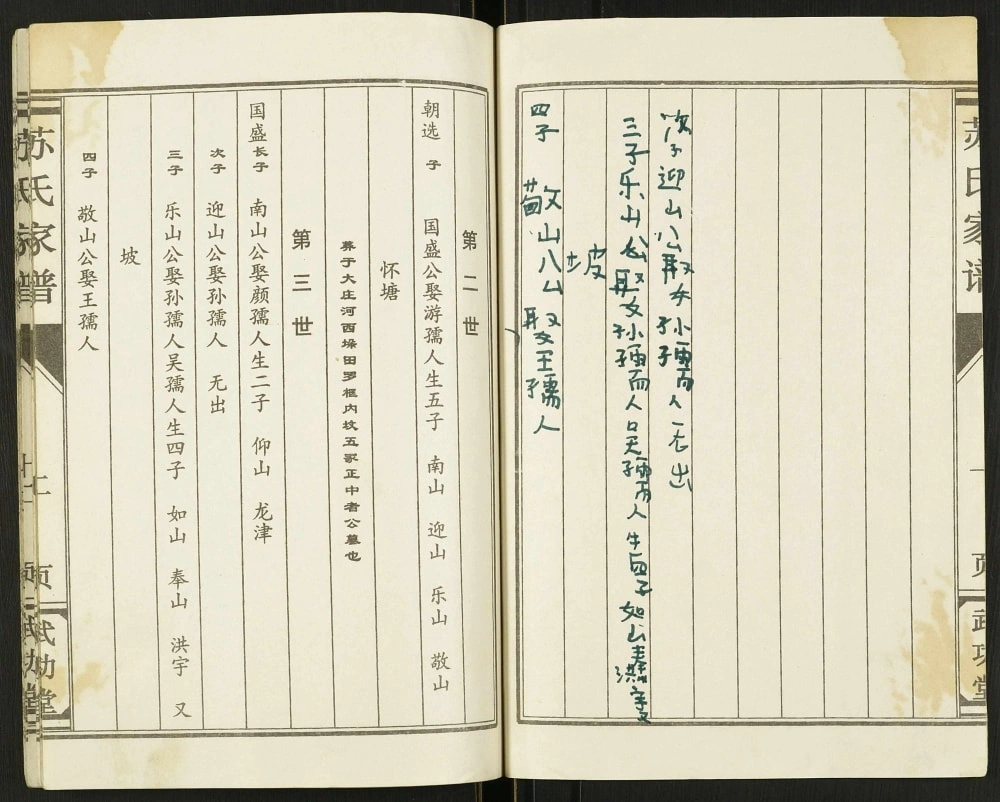 次子 迎山公取女孙孺人无出
三子乐山公娶孙孺人吴孺人生四子如山奉山洪宇又
坡
四子 敬山公娶王孺人
苏氏家谱
页
武功堂
第二世
朝选 子 国盛公娶游孺人生五子 南山 迎山 乐山 敬山
怀塘
葬于大庄河西垛田罗框内坟五冢正中者公墓也
第三世
国盛长子 南山公娶颜孺人生二子 仰山 龙津
次子 迎山公娶孙孺人 无出
三子 乐山公娶孙孺人吴孺人生四子 如山 奉山 洪宇 又
坡
四子 敬山公娶王孺人
苏氏家谱
页
武功堂